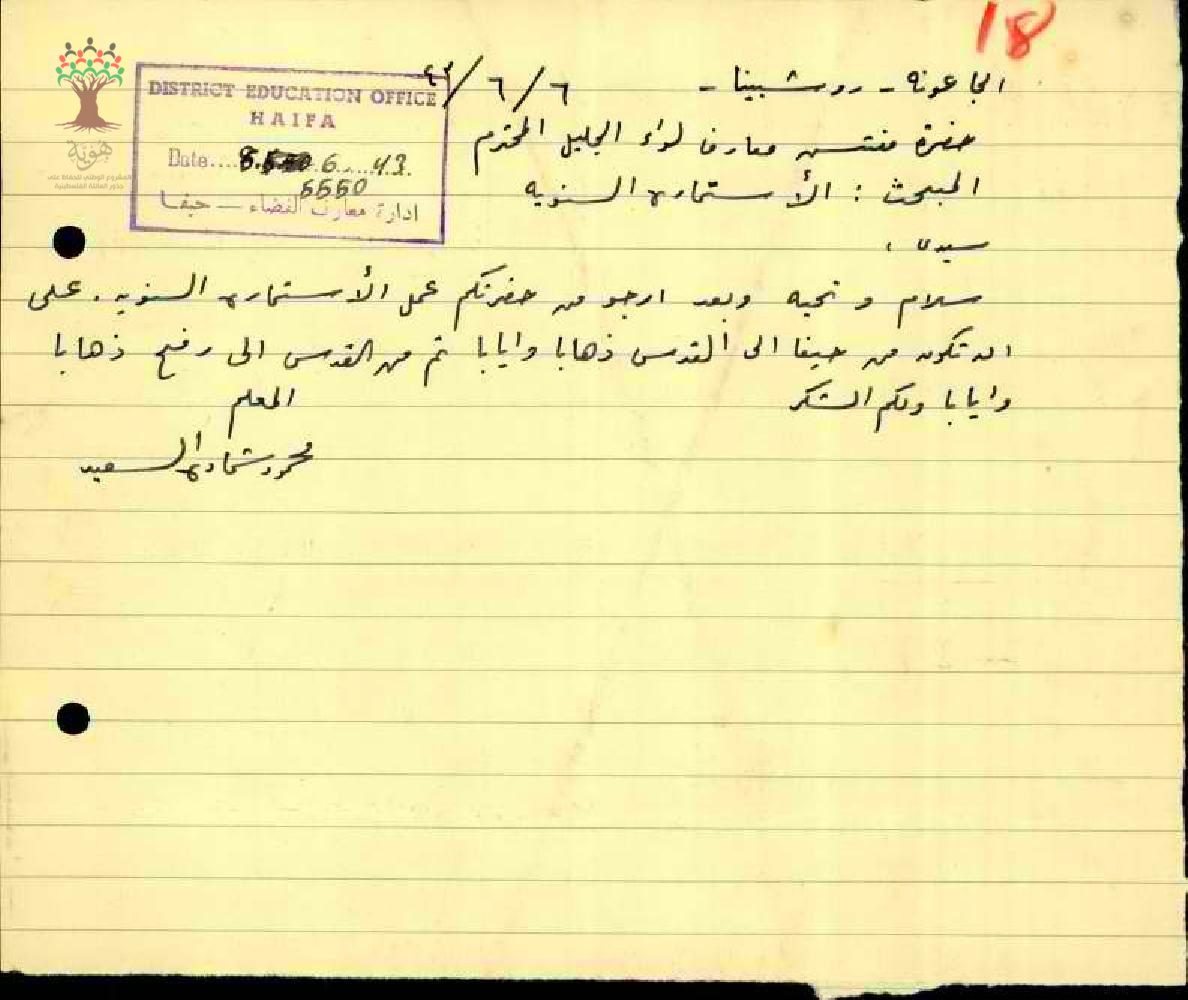 18
الجاعونه - روشبينا - ٦/٦/٤٣
حضرة مفتش معارف لواء الجليل المحترم
المبحث : الأستماره السنويه
سيدي ،
سلام وتحيه وبعد ارجو من حضرتكم عمل الأستماره السنويه . على
ان تكون من حيفا الى القدس ذهابا وايابا ثم من القدس الى رفح ذهابا
وايابا ولكم الشكر
المعلم
محمود شحاده السعيد
DISTRICT EDUCATION OFFICE
HAIFA
Date.... 8. 6. 43.
5550
ادارة معارف القضاء — حيفا
هوية
المشروع الوطني للحفاظ على
جذور العائلة الفلسطينية